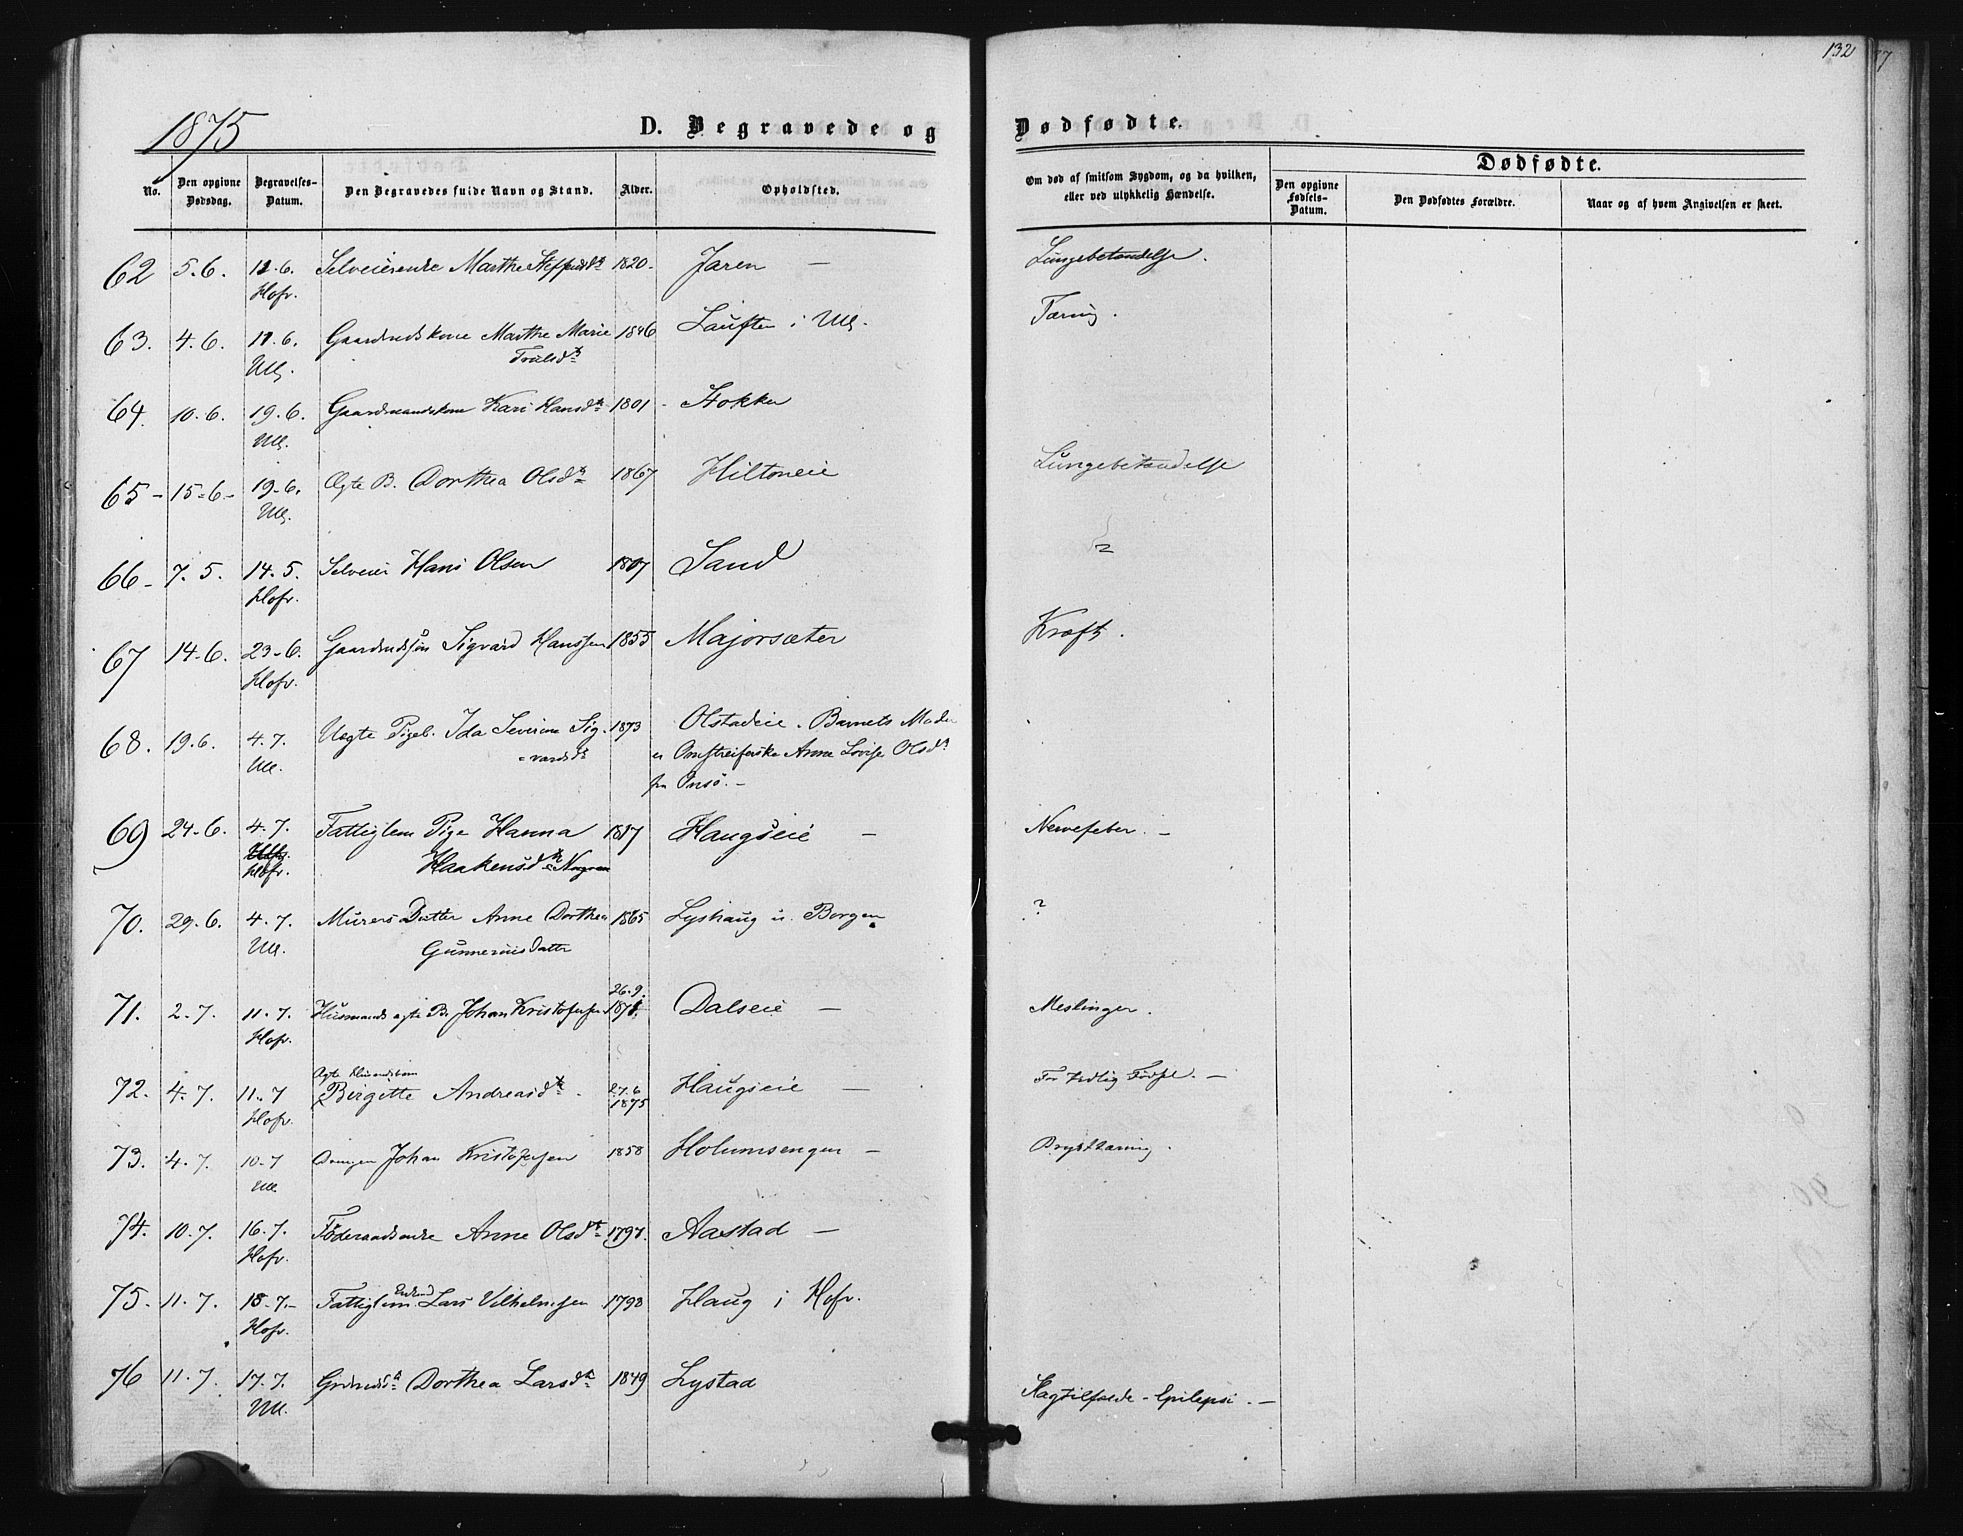 132
1875
D. Begravede og Dødfødte.
No. | Den opgivne Dødsdag. | Begravelses-Datum. | Den Begravedes fulde Navn og Stand. | Alder. | Opholdsted. | Om død af smitsom Sygdom, og da hvilken, eller ved ulykkelig Hændelse. | Dødfødte. | Den opgivne Fødsels-Datum. | Den Dødfødtes Forældre. | Naar og af hvem Angivelsen er skeet.
62 5.6. 12.6. Hofv. Selveierenke Marthe Steffensdtr 1820 Jaren — Lungebetændelse.
63. 4.6. 11.6. Ull. Gaardmdskone Marthe Marie Trulsdtr 1846 i Ull. Tæring.
64. 10.6. 19.6. Ull. Gaardmandskone Kari Hansdtr 1801 Stokker
65 15-6- 19-6. Ull. Ægte B. Dorthea Olsdtr 1867 Hiltoneie Lungebetændelse
66 7.5. 14.5. Hofv. Selveier Hans Olsen 1807 Sand ?
67 14-6. 23-6. Hofv. Gaardmdssøn Sigvard Hanssen 1855 Majorsæter Kræft.
68. 19.6. 4.7. Ull. Uægte Pigeb. Ida Severine Sigvardsdtr 1873 Olstadeie. Barnets Moder er Omstreiferske Anne Lovise Olsdtr fra Onsø. —
69 24-6. 4.7. Hofv. Fattiglem Pige Hanna Haakensdtr 1817 Haugseie — Nervefeber. —
70. 29.6. 4.7. Ull. Murers Datter Anne Dorthea Gunneriusdatter 1865 Lyshaug u. Borgen ?
71. 2.7. 11.7. Hofv. Husmands ægte B. Johan Kristofersen 26.9. 1871. Dalseie — Meslinger.
72. 4.7. 11.7 Hofv. Ægte Husmdsbarn Birgitte Andreasdtr. 27.6 1875 Haugseie — For tidlig Fødsel. —
73. 4.7. 10.7 Ull. Drengen Johan Kristofersen 1858 Holumsengen — Brysttæring.
74. 10.7. 16.7. Hofv. Føderaadsenke Anne Olsdtr 1797. Aastad —
75. 11.7. 18.7. Hofv. Fattiglem Lars Vilhelmsen 1798 Haug i Hofv.
76 11.7. 17.7. Ull. Dorthea Larsdtr 1849 Lystad Slagtilfælde - Epilepsi. —